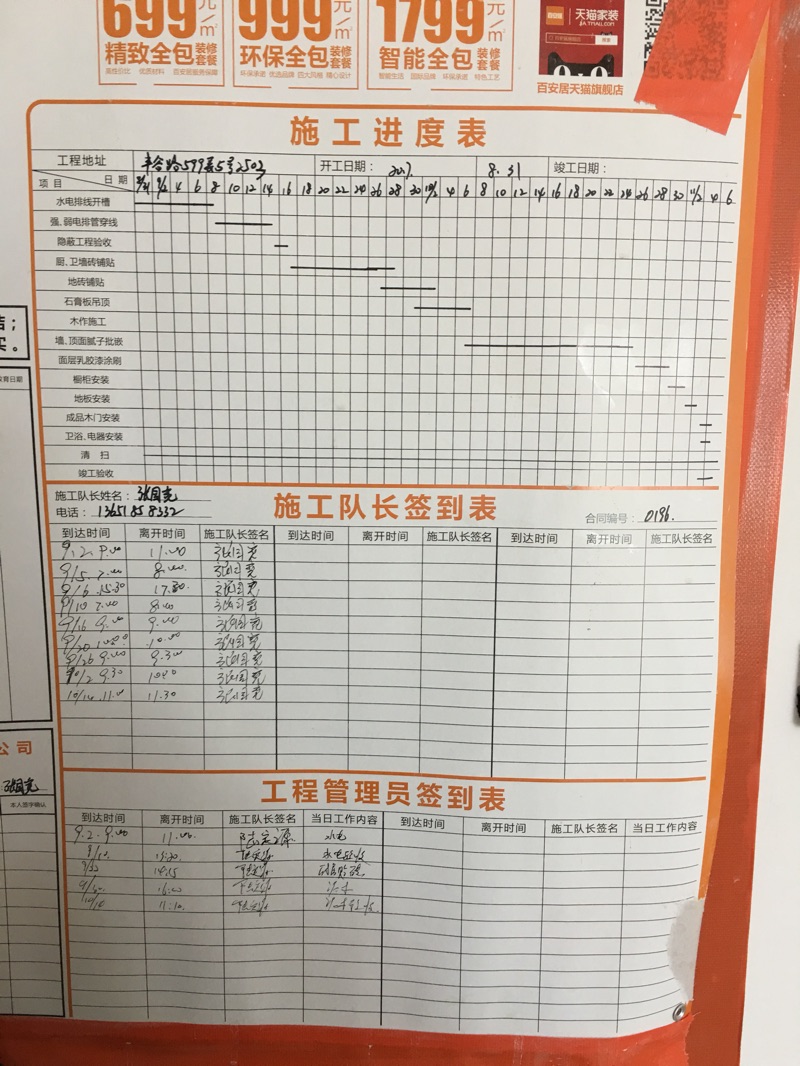 699元/m² 999元/m² 1799元/m²
精致全包装修套餐 环保全包装修套餐 智能全包装修套餐
高性价比 优质材料 百安居服务保障 环保承诺 优选品牌 四大风格 精心设计 智能生活 国际品牌 环保承诺 特色工艺
天猫家装
百安居天猫旗舰店
施工进度表
工程地址 丰谷路599弄5号2503 开工日期: 2017. 8.31 竣工日期:
项目 日期 8/31 9/2 4 6 8 10 12 14 16 18 20 22 24 26 28 30 10/2 4 6 8 10 12 14 16 18 20 22 24 26 28 30 11/2 4 6
水电排线开槽
强、弱电排管穿线
隐蔽工程验收
厨、卫墙砖铺贴
地砖铺贴
石膏板吊顶
木作施工
墙、顶面腻子批嵌
面层乳胶漆涂刷
橱柜安装
地板安装
成品木门安装
卫浴、电器安装
清 扫
竣工验收
施工队长姓名: 张国亮
电话: 13651858332
施工队长签到表
合同编号: 0196.
到达时间 离开时间 施工队长签名 到达时间 离开时间 施工队长签名 到达时间 离开时间 施工队长签名
9.2. 9.00 11.00 张国亮
9/5. 7.00 8.00 张国亮
9/6 15.30 17.30 张国亮
9/10 7.00 8.00 张国亮
9/16 9.00 张国亮
9/20 10.00 张国亮
9/26 9.00 9.30 张国亮
10/2 9.30 张国亮
10/14 11.00 11.30 张国亮
工程管理员签到表
到达时间 离开时间 施工队长签名 当日工作内容 到达时间 离开时间 施工队长签名 当日工作内容
9.2. 9.00 11.00 水电
水电验收
14:15
16:00
10/10 11:10
公司
张国亮
本人签字确认
教育日期